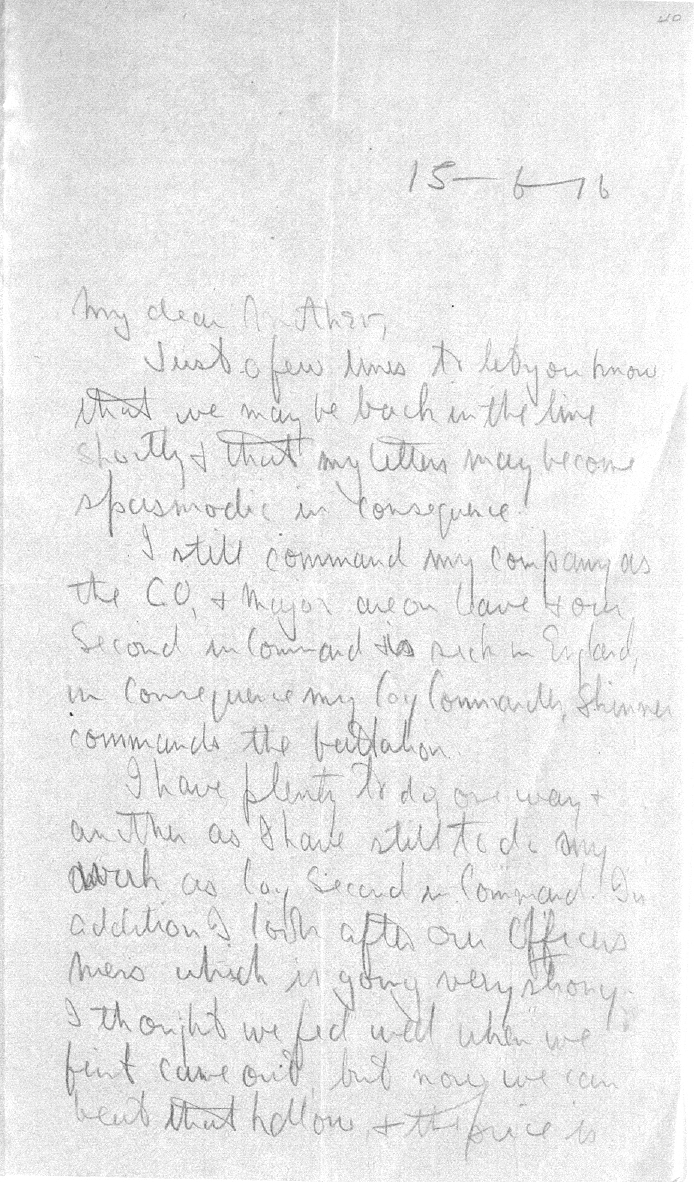 40
15-6-16
My dear Mother,
Just a few lines to let you know
that we may be back in the line
shortly & that my letters may become
spasmodic in consequence.
I still command my company as
the C.O, & Major are on leave & our
Second in Command is sick in England,
in consequence my Coy Commander,
commands the battalion.
I have plenty to do, one way &
another as I have still to do my
work as Coy Second in Command. In
addition I look after our Officers
Mess which is going very strong.
I thought we fed well when we
first came out, but now we can
beat that hollow, & the price is